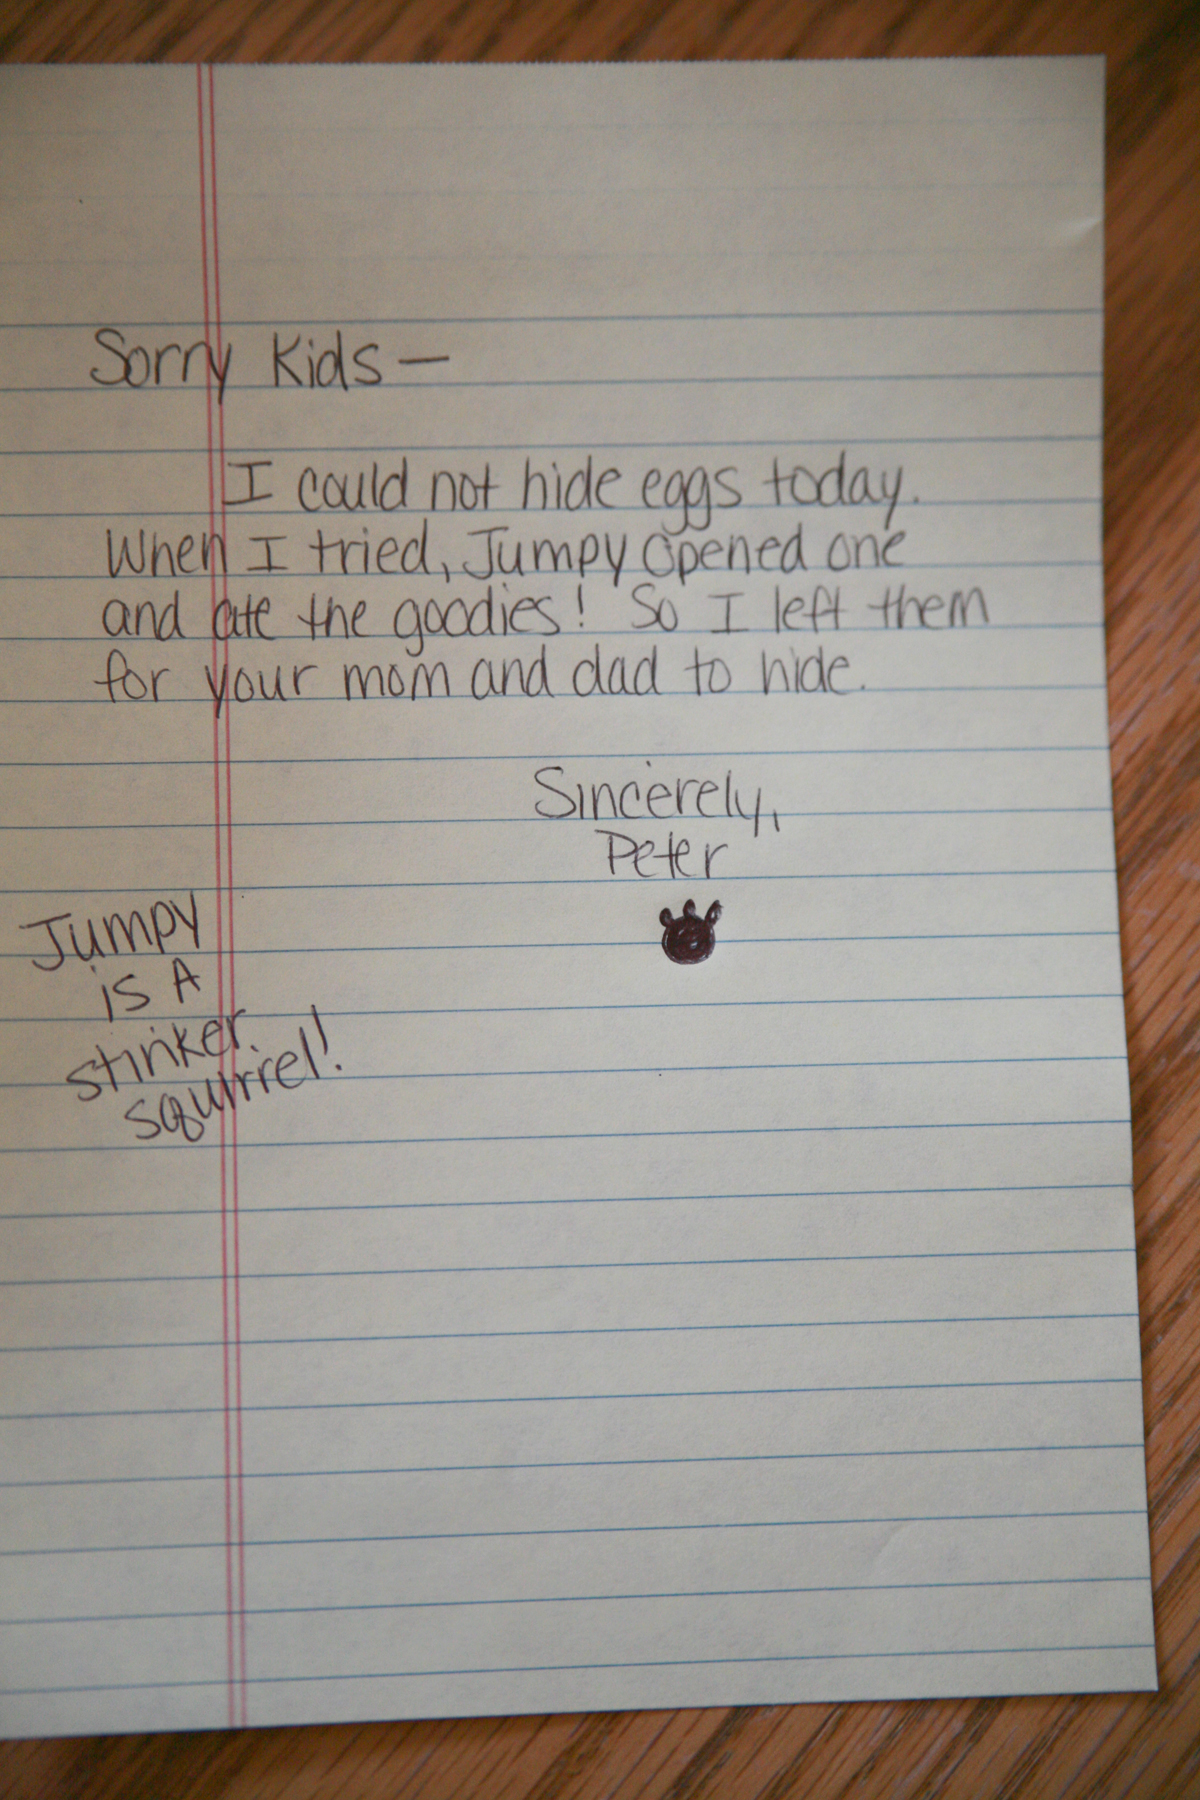 Sorry Kids —
I could not hide eggs today.
When I tried, Jumpy opened one
and ate the goodies! So I left them
for your mom and dad to hide.
Sincerely,
Peter
Jumpy
is A
stinker
squirrel!